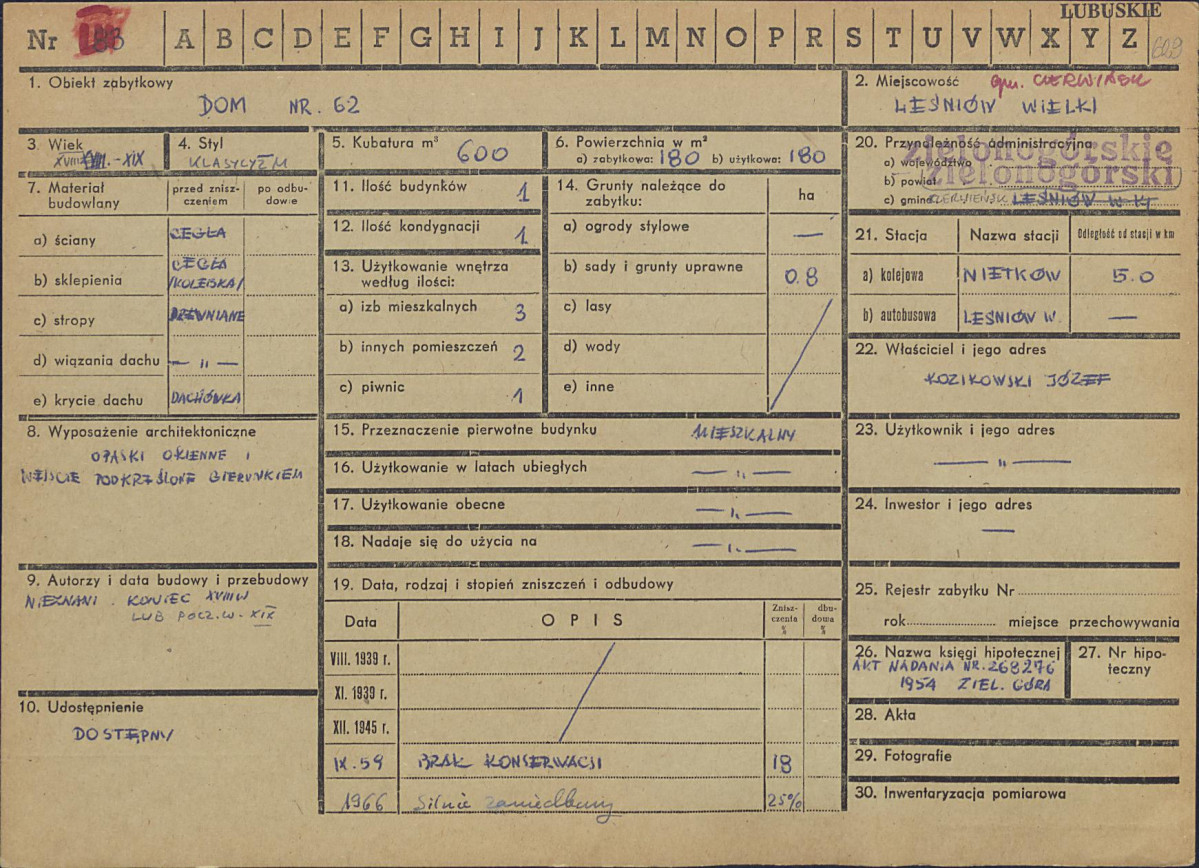 LUBUSKIE
Nr 183 A B C D E F G H I J K L M N O P R S T U V W X Y Z
1. Obiekt zabytkowy
DOM NR. 62
2. Miejscowość gm. CZERWIEŃSK
LEŚNIÓW WIELKI
3. Wiek
XVIII - XIX
4. Styl
KLASYCYZM
5. Kubatura m³ 600
6. Powierzchnia w m²
a) zabytkowa: 180 b) użytkowa: 180
20. Przynależność administracyjna
a) województwo zielonogórskie
b) powiat zielonogórski
c) gmina CZERWIEŃSK LEŚNIÓW W-KI
7. Materiał budowlany
przed zniszczeniem
po odbudowie
a) ściany CEGŁA
b) sklepienia CEGŁA /KOLEBKA/
c) stropy DREWNIANE
d) wiązania dachu — " —
e) krycie dachu DACHÓWKA
11. Ilość budynków 1
12. Ilość kondygnacji 1
13. Użytkowanie wnętrza
według ilości:
a) izb mieszkalnych 3
b) innych pomieszczeń 2
c) piwnic 1
14. Grunty należące do
zabytku:
ha
a) ogrody stylowe —
b) sady i grunty uprawne 0.8
c) lasy
d) wody
e) inne
21. Stacja Nazwa stacji Odległość od stacji w km
a) kolejowa NIETKÓW 5.0
b) autobusowa LEŚNIÓW W. —
22. Właściciel i jego adres
KOZIKOWSKI JÓZEF
8. Wyposażenie architektoniczne
OPASKI OKIENNE I
WEJŚCIE PODKRŹŚLONE GIERUNKIEM
15. Przeznaczenie pierwotne budynku MIESZKALNY
16. Użytkowanie w latach ubiegłych — " —
17. Użytkowanie obecne — " —
18. Nadaje się do użycia na — " —
23. Użytkownik i jego adres
— " —
24. Inwestor i jego adres
—
9. Autorzy i data budowy i przebudowy
NIEZNANI. KONIEC XVIII W
LUB POCZ. W. XIX
19. Data, rodzaj i stopień zniszczeń i odbudowy
Data OPIS Zniszczenia % dbudowa %
VIII. 1939 r.
XI. 1939 r.
XII. 1945 r.
IX. 59 BRAK KONSERWACJI 18
1966 Silnie zaniedbany 25%
25. Rejestr zabytku Nr
rok miejsce przechowywania
26. Nazwa księgi hipotecznej
AKT NADANIA NR. 268276
1954 ZIEL. GÓRA
27. Nr hipoteczny
10. Udostępnienie
DOSTĘPNY
28. Akta
29. Fotografie
30. Inwentaryzacja pomiarowa